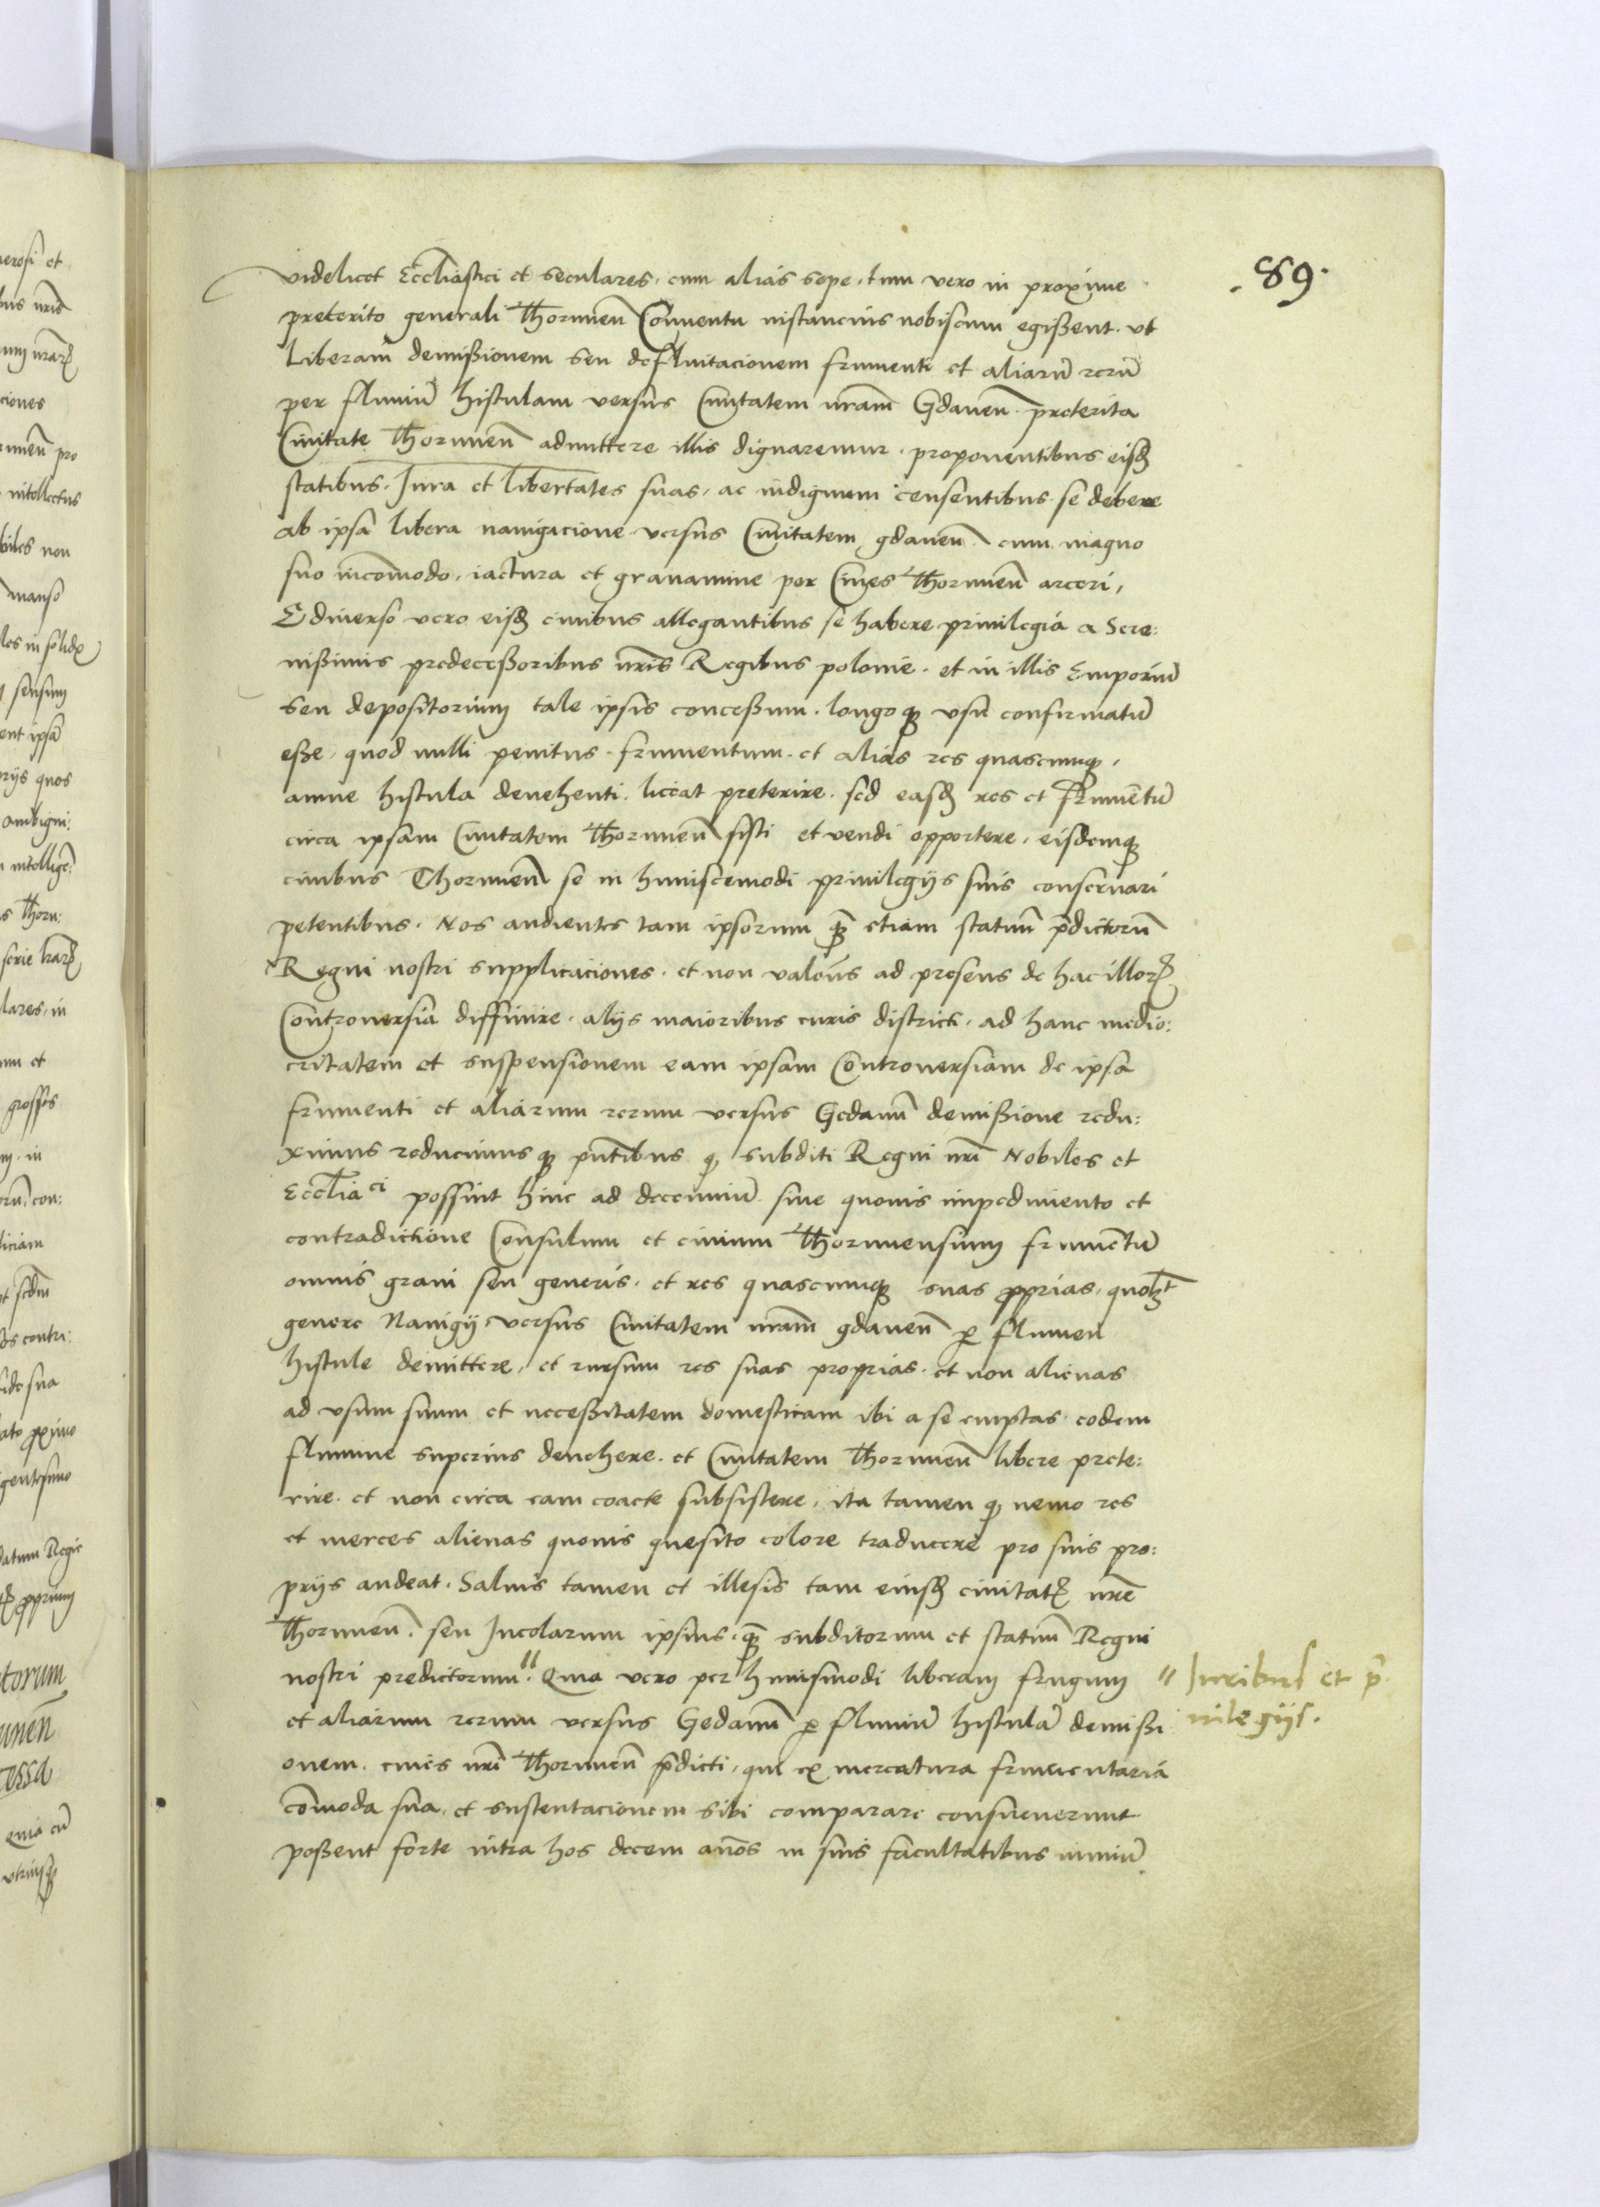 .89.
videlicet Eccliastici et seculares. cum alias sepe. tum vero in proxime
preterito generali Thorunen̄ Conventu instancius nobiscum egissent. ut
Liberam demissionem seu defluitacionem frumenti et aliarū rerū
per fluuiū histulam versus Ciuitatem nr̄am Gdanen̄. preterita
Ciuitate Thorunen̄ admittere illis dignaremur. proponentibus eisdē
statibus. Jura et libertates suas, ac indignum censentibus se debere
ab ipsa libera nauigacione versus Ciuitatem gdanen̄ cum magno
suo incom̄odo, iactura et grauamine per Ciues Thorunen̄ arceri,
E diuerso vero eisdē ciuibus allegantibus se habere priuilegia a Sere:
nissimis predecessoribus nr̄is Regibus polonie. et in illis Emporiū
seu depositorium tale ipsis concessum. longoqꝫ vsu confirmatū
esse, quod nulli penitus. frumentum. et alias res quascunqꝫ,
amne histula deuehenti. liceat preterire. sed easdē res et frumentū
circa ipsam Ciuitatem Thorunen̄ sisti et vendi opportere, eisdemqꝫ
ciuibus Thorunen̄ se in huiuscemodi priuilegijs suis conseruari
petentibus. Nos audientes tam ipsorum qꝫ̄ etiam statuū p̄dictorū
Regni nostri supplicaciones. et non valen̄s ad presens de hac illorꝫ
Controuersia diffinire. alijs maioribus curis districti. ad hanc medio:
critatem et suspensionem eam ipsam Controuersiam de ipsa
frumenti et aliarum rerum versus Gedanū demissione redu:
ximus reducimusqꝫ pn̄tibus qꝫ subditi Regni nr̄i Nobiles et
Ecclia ci possint hinc ad decenniū. sine quouis impedimento et
contradictione Consulum et ciuium Thorunensium frumentū
omnis grani seu generis. et res quascunqꝫ suas ꝓprias, quolꝫt
genere Nauigij versus Ciuitatem nr̄am gdanen̄ ꝑ flumen
histule demittere, et rursum res suas proprias. et non alienas
ad vsum suum et necessitatem domesticam ibi a se emptas eodem
flumine superius deuehere. et Ciuitatem Thorunen̄ libere prete:
rire. et non circa eam coacte subsistere, ita tamen qꝫ nemo res
et merces alienas quouis quesito colore traducere pro suis pro:
prijs audeat. Saluis tamen et illesis tam eiusdē ciuitatꝫ nr̄e
Thorunen̄. seu Incolarum ipsius. qꝫ̄ subditorum et statuū Regni
nostri predictorum". Quia vero per huiusmodi liberam frugum
et aliarum rerum versus Gedanū ꝑ fluuiū histulā demissi
onem. ciues nr̄i Thorunen̄ p̄dicti, qui ex mercatura frumentaria
com̄oda sua, et sustentacionem sibi comparare consueuerunt
possent forte intra hos decem an̄os in suis facultatibus nimiū
" Juribus et p̄
uilegijs.